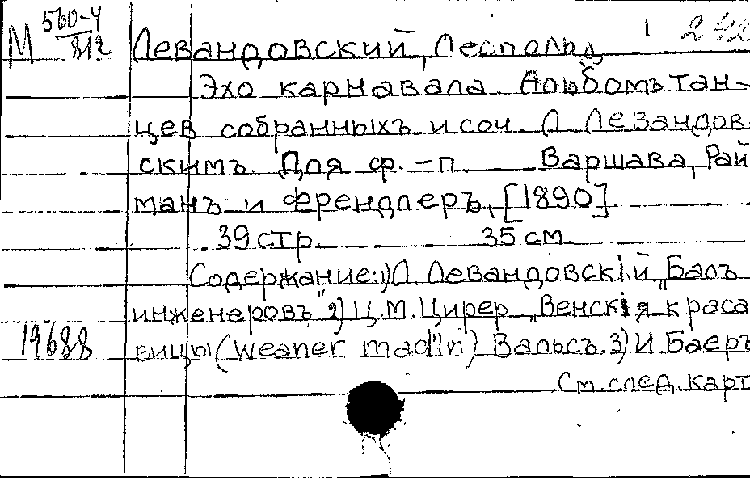 М 560-4/812
Левандовский, Леопольд 1
Эхо карнавала. Альбомъ тан-
цев собранныхъ и соч. Л. Левандов-
скимъ. Для ф.-п. Варшава, Рай
манъ и Френдлеръ, [1890]
39 стр. 35 см
Содержание: 1) Л. Левандовскій „Балъ
инженеровъ" 2) Ц. М. Цирер „Венскія краса
вицы (Weaner mad'ln) Вальсъ. 3) И. Баеръ
19688
См. след. карт